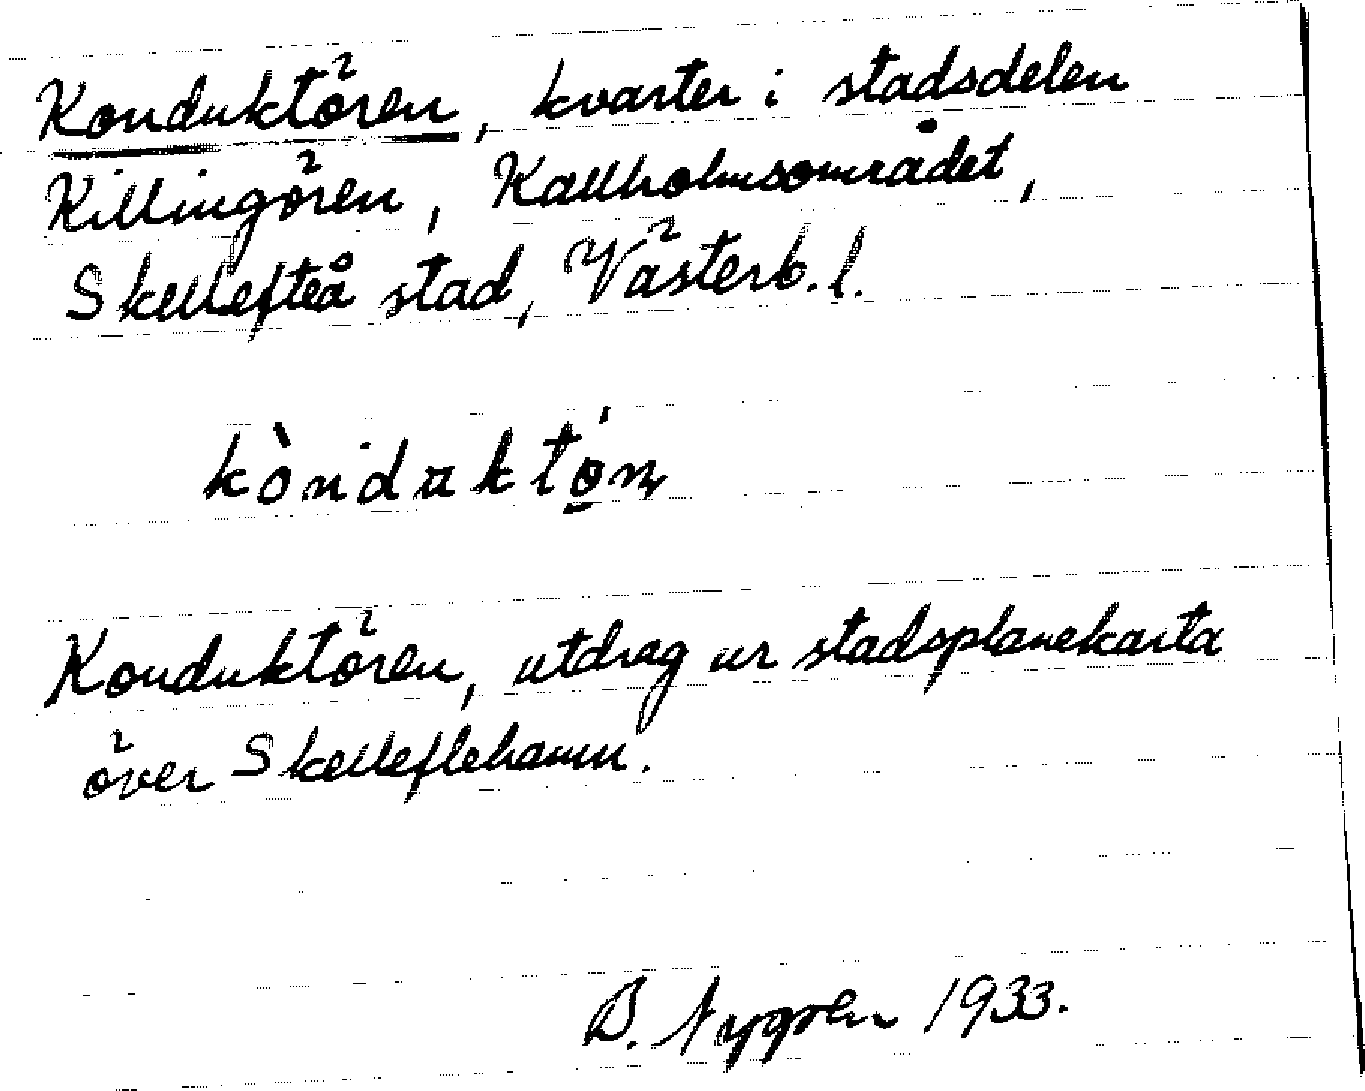 Konduktören, kvarter i stadsdelen
Killingören, Kallholmsområdet,
Skellefteå stad, Västerb. l.
kònduktǿn
Konduktören, utdrag ur stadsplanekarta
över Skelleftehamn.
B. Nygren 1933.